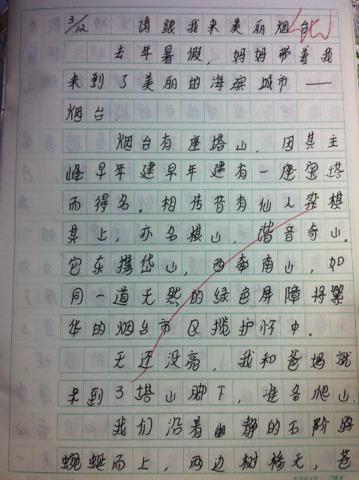 3/12 请跟我来美丽烟台
去年暑假，妈妈带着我
来到了美丽的海滨城市——
烟台
烟台有座塔山，因其主
峰早年建早年建有一座宝塔
而得名。相传昔有仙人弈棋
其上，亦名棋山，谐音奇山。
它东携岱山，西牵南山，如
同一道天然的绿色屏障将繁
华的烟台市区揽护怀中。
天还没亮，我和爸妈就
来到了塔山脚下，准备爬山。
我们沿着幽静的石阶路
蜿蜒而上，两边树梢天，苍